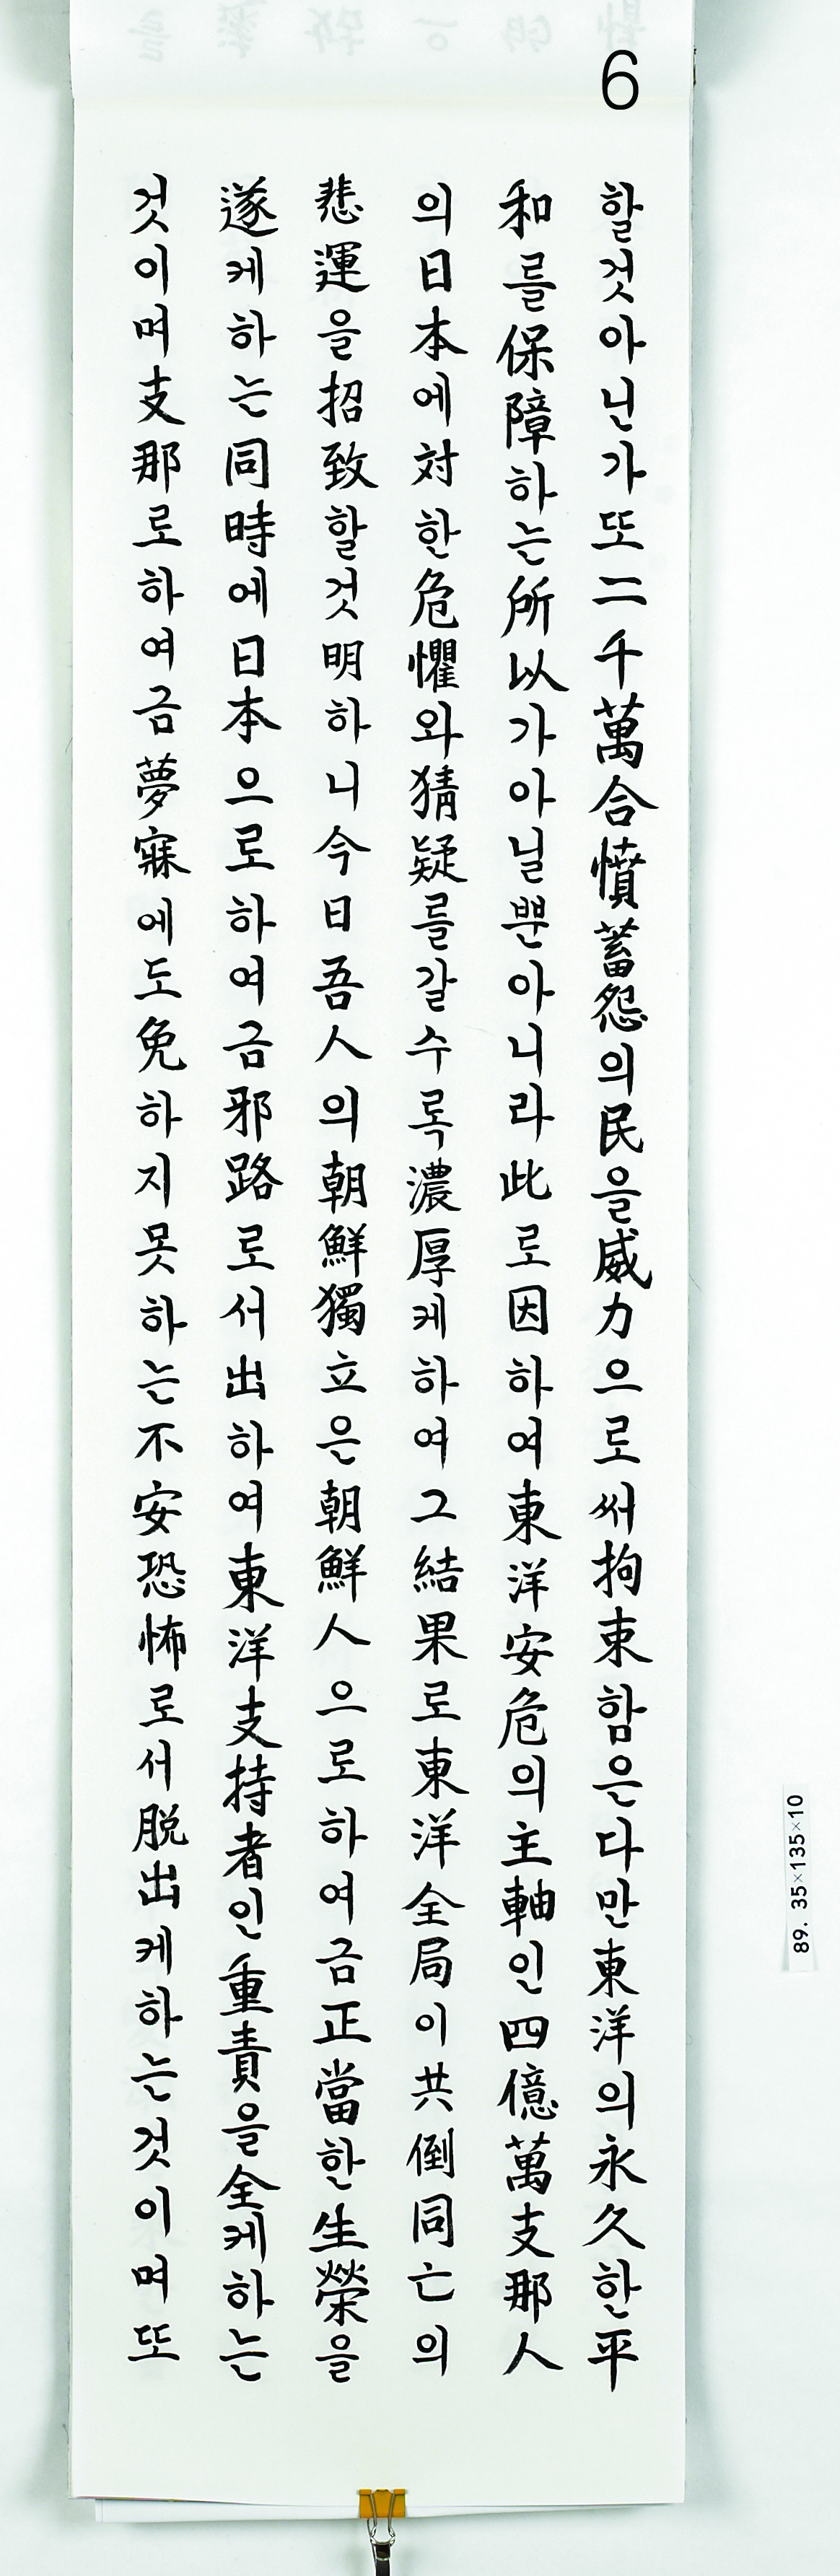 6
할것아닌가또二千萬含憤蓄怨의民을威力으로써拘束함은다만東洋의永久한平
和를保障하는所以가아닐뿐아니라此로因하여東洋安危의主軸인四億萬支那人
의日本에対한危懼와猜疑를갈수록濃厚케하여그結果로東洋全局이共倒同亡의
悲運을招致할것明하니今日吾人의朝鮮獨立은朝鮮人으로하여금正當한生榮을
遂케하는同時에日本으로하여금邪路로서出하여東洋支持者인重責을全케하는
것이며支那로하여금夢寐에도免하지못하는不安恐怖로서脱出케하는것이며또
89. 35×135×10